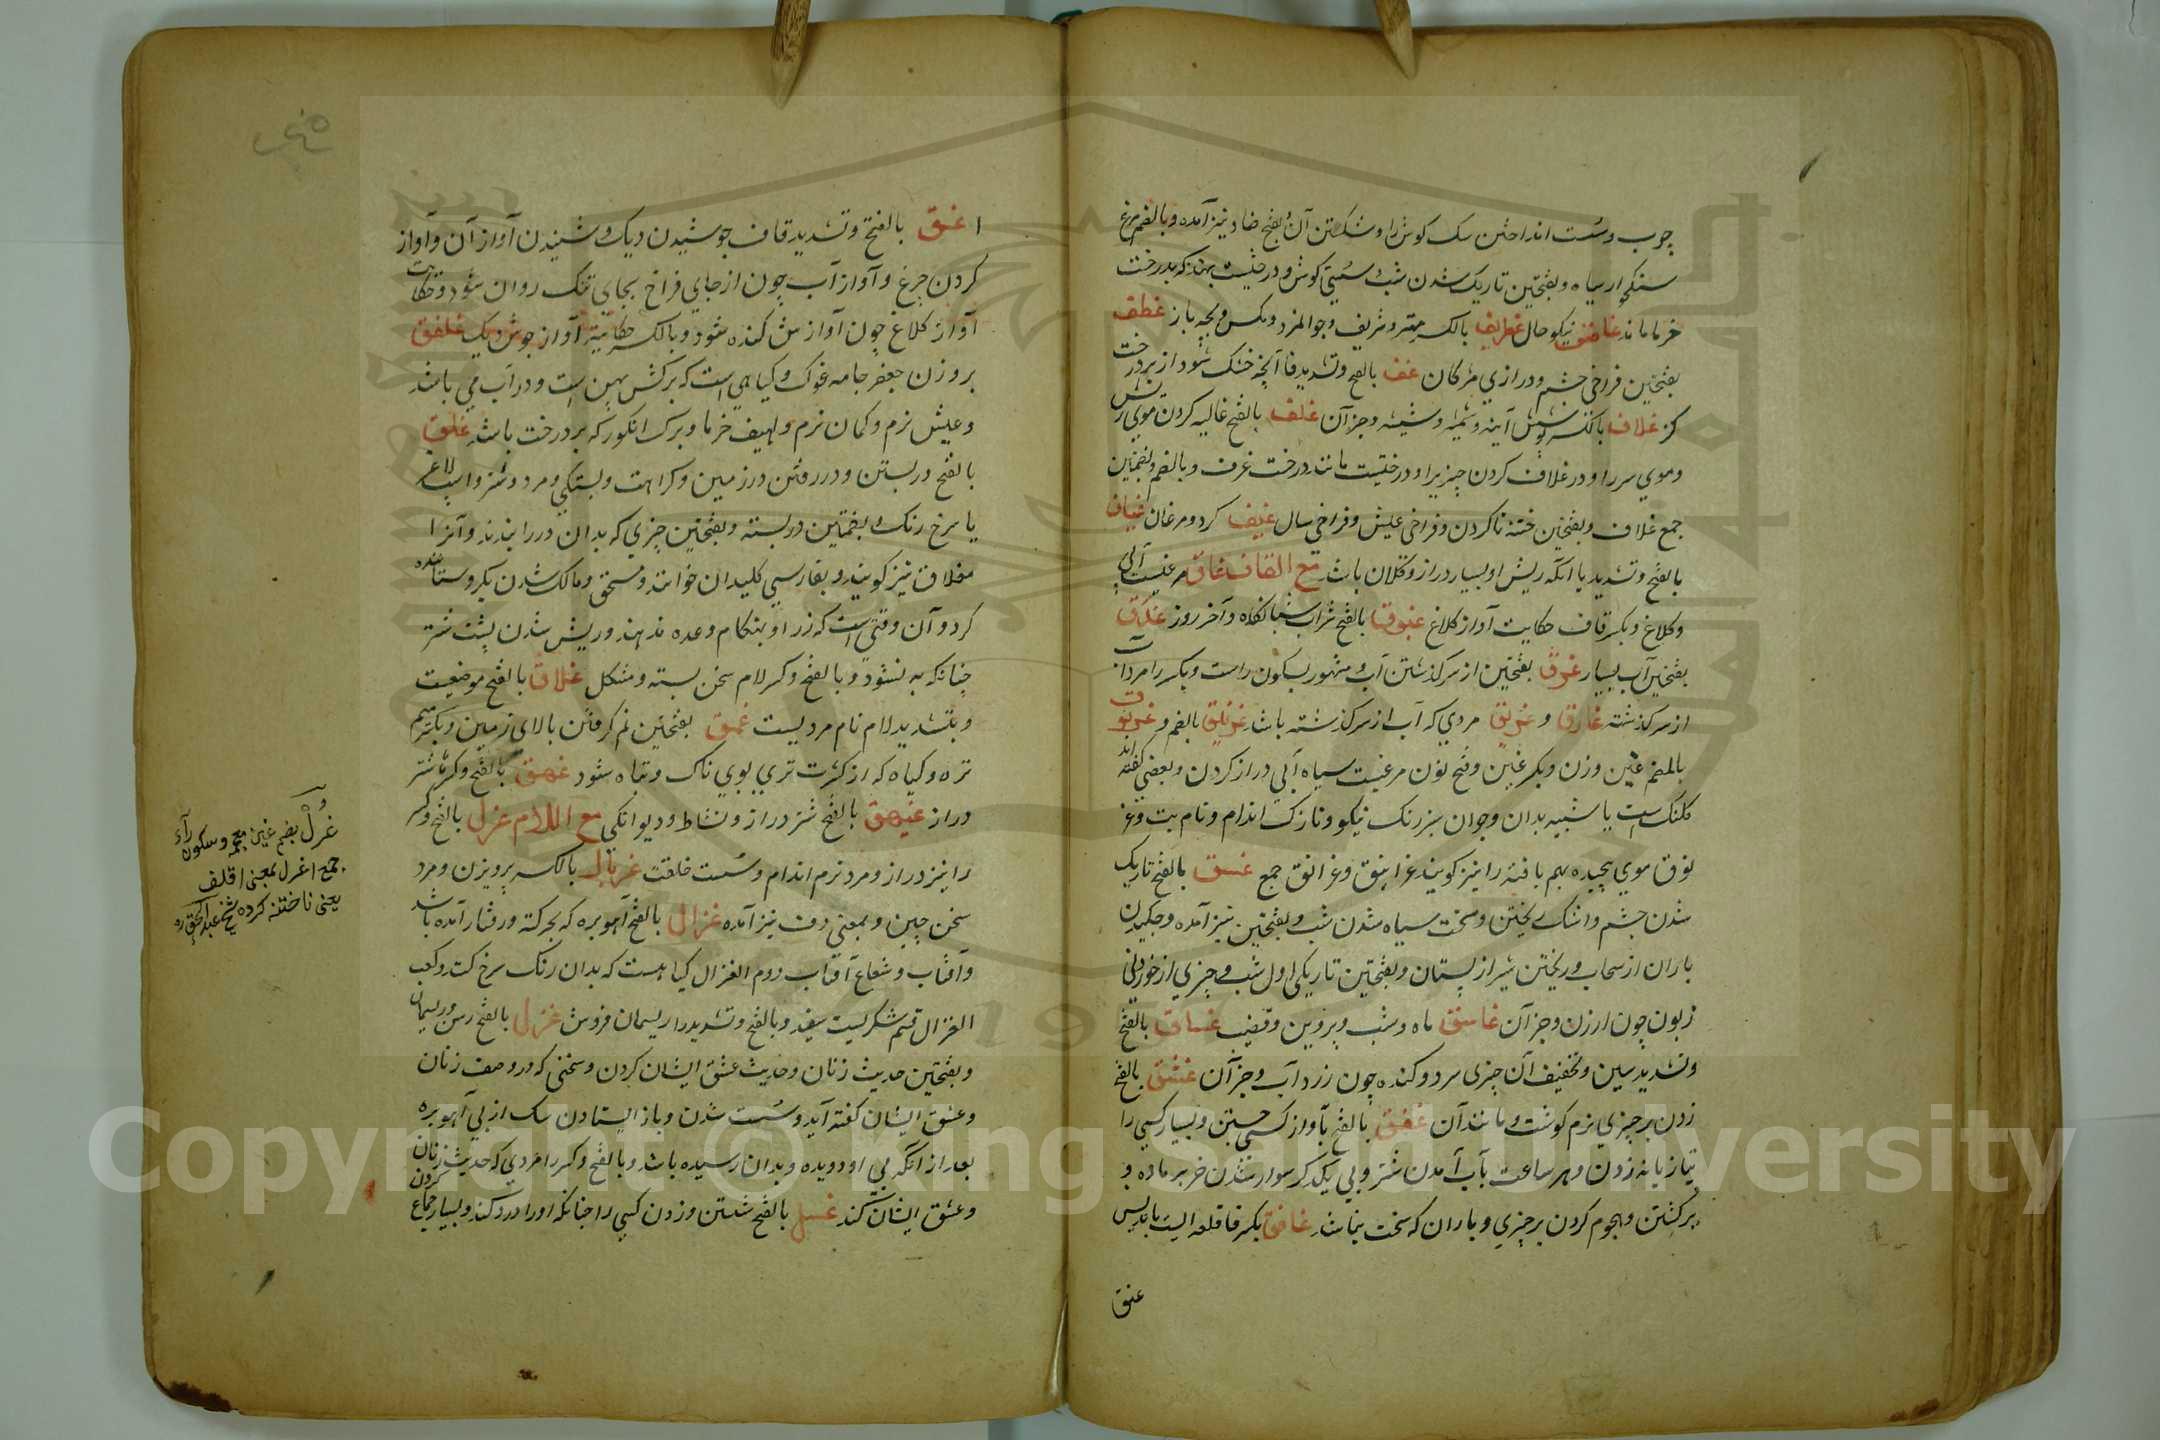 چوب وسست انداختن سک کوش را وشکستن آن وبفتح ضاد نیز آمده وبالضم مرغ
سنکخوار سیاه وبفتحتین تاریک شدن شب وسستی کوش ودرختیست بهند که بدرخت
خرما ماند غاضف نیکو حال غطریف بالکسر مهتر وشریف وجوانمرد ومکس وبچه باز غطف
بفتحتین فراخی چشم ودرازی مژکان غف بالضم وتشدید فا آنچه خشک شود از بر درخت
کز غلاف بالکسر پوشش آینه وشیشه وجز آن غلف بالفتح غالیه کردن موی ریش
وموی سر را ودر غلاف کردن چیزیرا ودرختیست مانند درخت غرف وبالضم وبضمتان
جمع غلاف وبفتحتین ختنه ناکردن وفراخی عیش وفراخی سال غیف کرد ومرغان غیاف
بالفتح وتشدید یا آنکه ریش او بسیار دراز وکلان باشد مع القاف غاق مرغیست آبی
وکلاغ وبکسر قاف حکایت آواز کلاغ غبوق بالفتح شراب شبانکاه وآخر روز غدق
بفتحتین آب بسیار غرق بفتحتین از سر کذشتن آب ومشهور بسکون راست وبکسر را مرد آب
از سر کذشته غارق و غریق مردی که آب از سر کذشته باشد غرنیق بالضم و غرنوق
بالضم غین وزن وبکسر غین وفتح نون مرغیست سیاه آبی دراز کردن وبعضی کفته اند
کلنک است یا شبیه بدان وجوان سبز رنک نیکو ونازک اندام ونام بت وغر
نوق موی پیچیده بهم بافته را نیز کویند غرانیق وغرانق جمع غسق بالفتح تاریک
شدن چشم واشک ریختن وسخت سیاه شدن شب وبفتحتین نیز آمده وچکیدن
باران از سحاب وریختن شیر از پستان وبفتحتین تاریکی اول شب وچیزی از خوردنی
زبون چون ارزن وجز آن غاسق ماه وشب وپروین وقضیب غساق بالفتح
وتشدید سین وتخفیف آن چیزی سرد وکنده چون زرد آب وجز آن غشق بالفتح
زدن بر چیزی نرم کوشت ومانند آن غفق بالفتح بآواز کسی جستن وبسیار کسی را
بتازیانه زدن وهر ساعت بآب آمدن شتر وپی یکدیکر سوار شدن خر بر ماده و
برکشتن وهجوم کردن بر چیزی وباران که سخت نباشد غافق بکسر فا قلعه ایست باندلس
غق
ا غق بالفتح وتشدید قاف جوشیدن دیک وشنیدن آواز آن وآواز
کردن چرغ وآواز آب چون از جای فراخ بجای تنک روان شود وحکایت
آواز کلاغ چون آوازش کنده شود وبالکسر حکایة آواز جوش دیک غلفق
بر وزن جعفر جامه غوک وکیاهی است که برکش پهن است ودر آب می باشد
وعیش نرم وکمان نرم ولیف خرما وبرک انکور که بر درخت باشد غلق
بالفتح در بستن ودر رفتن در زمین وکراهت وبستکی ومرد وشتر واسب لاغر
یا سرخ رنک وبضمتین در بسته وبفتحتین چیزی که بدان در را بندند وآنرا
مغلاق نیز کویند وبفارسی کلیدان خوانند ومستحق ومالک شدن بکرو ستاننده
کرو وآن وقتی است که زر او بهنکام وعده ندهند وریش شدن پشت شتر
چنانکه به نشود وبالفتح وکسر لام سخن بسته ومشکل غلاق بالفتح موضعیست
وبتشدید لام نام مردیست غمق بفتحتین نم کرفتن بالای زمین وبکسر میم
تره وکیاه که از کثرت تری بوی ناک وتباه شود غهق بالفتح وکسر ها شتر
دراز غیهق بالفتح شتر دراز ونشاط ودیوانکی مع اللام غزل بالفتح وکسر
را نیز دراز ومرد نرم اندام وسست خلقت غربال بالکسر پرویزن ومرد
سخن چین وبمعنی دف نیز آمده غزال بالفتح آهو بره که بحرکة ورفتار آمده باشد
وآفتاب وشعاع آفتاب ودم الغزال کیاهیست که بدان رنک سرخ کند وکعب
الغزال قسم شکریست سفید وبالفتح وتشدید زا ریسمان فروش غزل بالفتح رسن وریسمان
وبفتحتین حدیث زنان وحدیث عشق ایشان کردن وسخنی که در وصف زنان
وعشق ایشان کفته آید وسست شدن وباز ایستادن سک از پی آهو بره
بعد از آنکه پی او دویده وبدان رسیده باشد وبالفتح وکسر زا مردی که حدیث زنان کردن
وعشق ایشان کند غسل بالفتح شستن وزدن کسی را چنانکه او را درد کند وبسیار جماع
غرل بضم غین معجمه وسکون رآء
جمع اغرل بمعنی اقلف
یعنی ناختنه کرده شیخ عبدالحق ره
Copyright © King Saud University